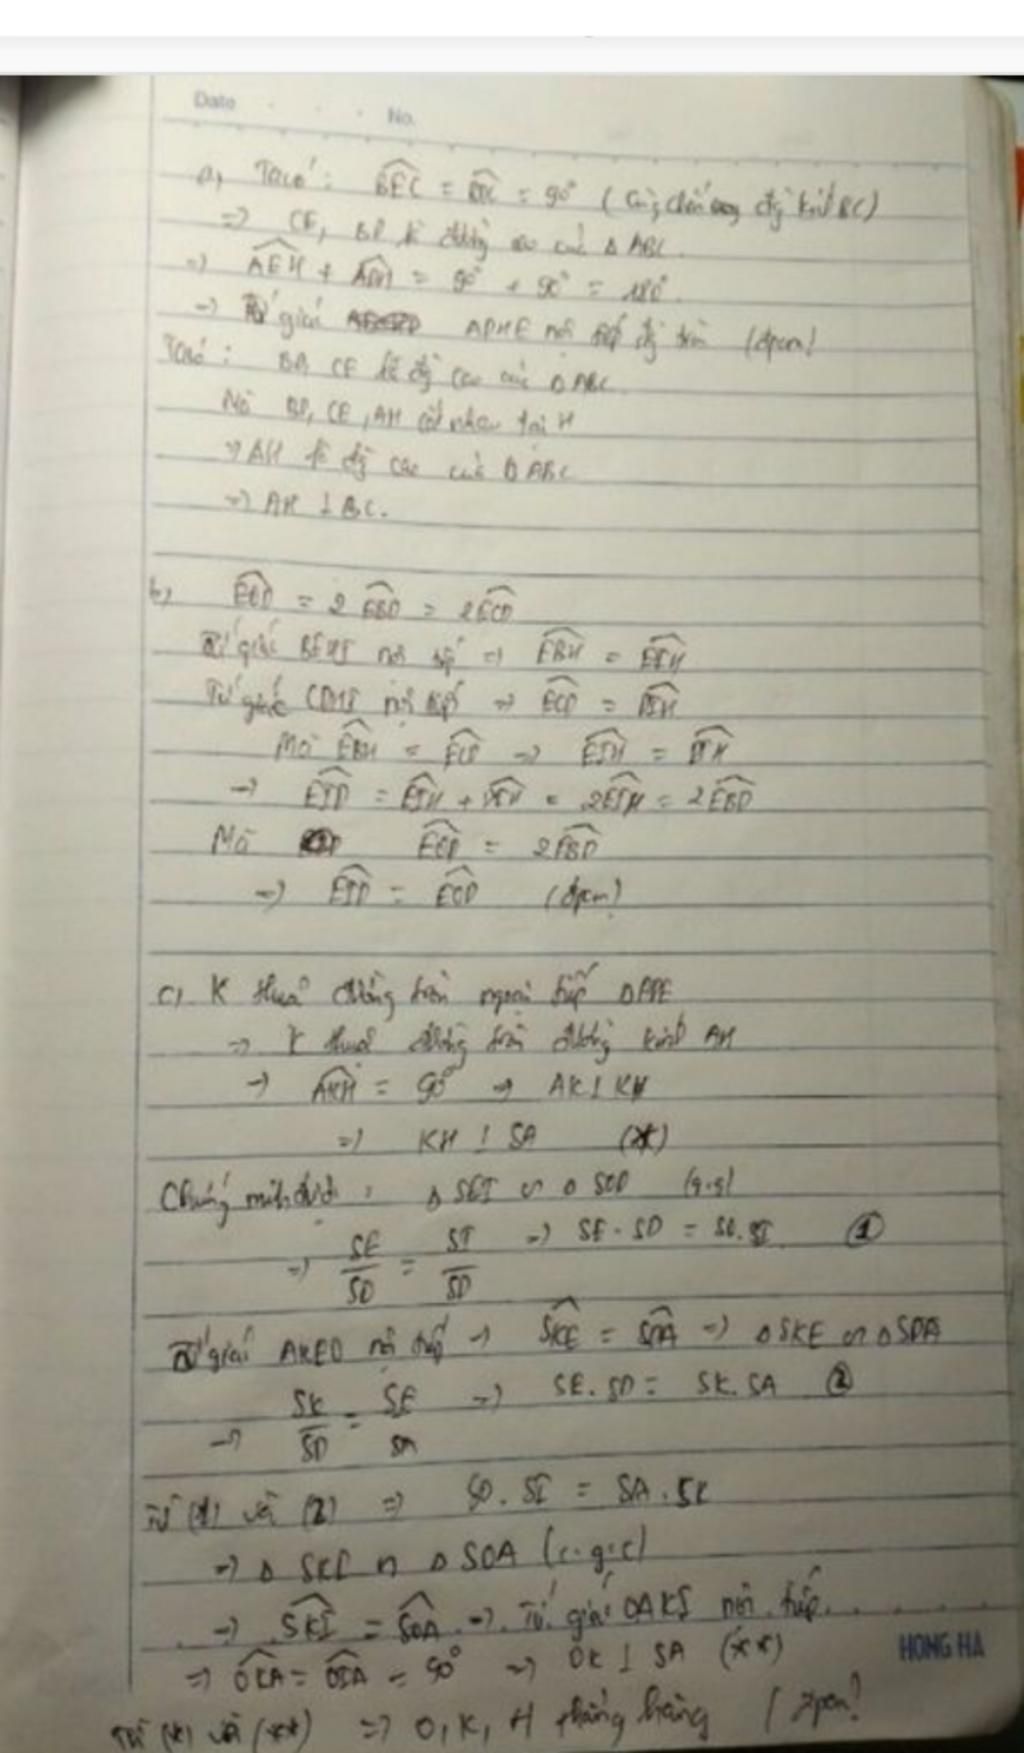 Date No.
a, Ta có: BEC = BDC = 90° (Cùng chắn đg kính BC)
=> CE, BD là đường cao của Δ ABC.
=> AEH + ADH = 90° + 90° = 180°.
-> Tứ giác ADHE nội tiếp đg tròn (đpcm)
Ta có: BD CE là đg cao của Δ ABC
Mà BD, CE, AH cắt nhau tại H
=> AH là đg cao của Δ ABC
=> AH ⊥ BC.
b, EOD = 2 EBD = 2 ECD
Tứ giác BEHI nội tiếp => EBH = EIH
Tứ giác CDHI nội tiếp => ECD = DIH
Mà EBH = ECD => EIH = DIH
-> EID = EIH + DIH = 2EIH = 2EBD
Mà EOD = 2EBD
=> EID = EOD (đpcm)
c, K thuộc đường tròn ngoại tiếp Δ ADE
-> K thuộc đường tròn đường kính AH
-> AKH = 90° -> AK ⊥ KH
=> KH ⊥ SA (*)
Chứng minh được: Δ SEI ∽ Δ SOD (g.g)
=> SE/SO = SI/SD => SE . SD = SO.SI (1)
Tứ giác AKED nội tiếp -> SKE = SDA => Δ SKE ∽ Δ SDA
-> SK/SD = SE/SA => SE.SD = SK.SA (2)
Từ (1) và (2) => SO.SI = SA.SK
-> Δ SKI ∽ Δ SOA (c.g.c)
-> SKI = SOA -> Tứ giác OAKI nội tiếp
HONG HA
=> OKA = OIA = 90° => OK ⊥ SA (**)
Từ (*) và (**) => O, K, H thẳng hàng (đpcm)